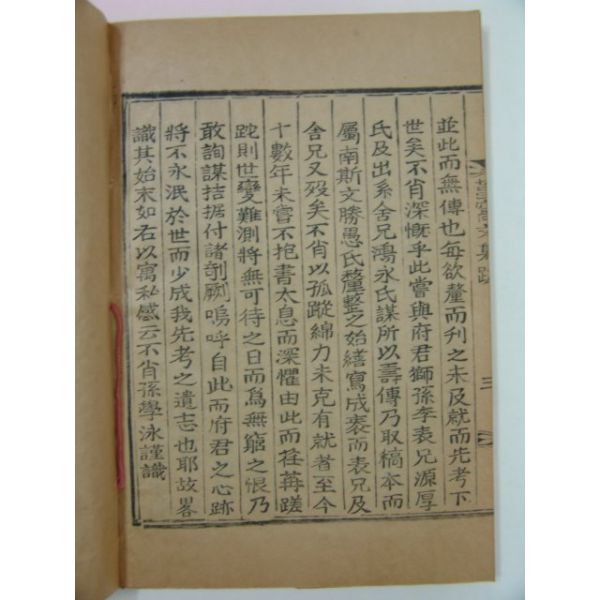 並此而無傳也每欲釐而刊之未及就而先考下
世矣不肖深慨乎此嘗與府君獅孫李表兄源厚
氏及出系舍兄鴻永氏謀所以壽傳乃取稿本而
屬南斯文勝愚氏釐整之始繕寫成袠而表兄及
舍兄又歿矣不肖以孤蹤綿力未克有就者至今
十數年未嘗不抱書太息而深懼由此而荏苒蹉
跎則世變難測將無可待之日而爲無窮之恨乃
敢詢謀拮据付諸剞劂嗚呼自此而府君之心跡
將不永泯於世而少成我先考之遺志也耶故畧
識其始末如右以寓私感云不肖孫學泳謹識
文集跋
三